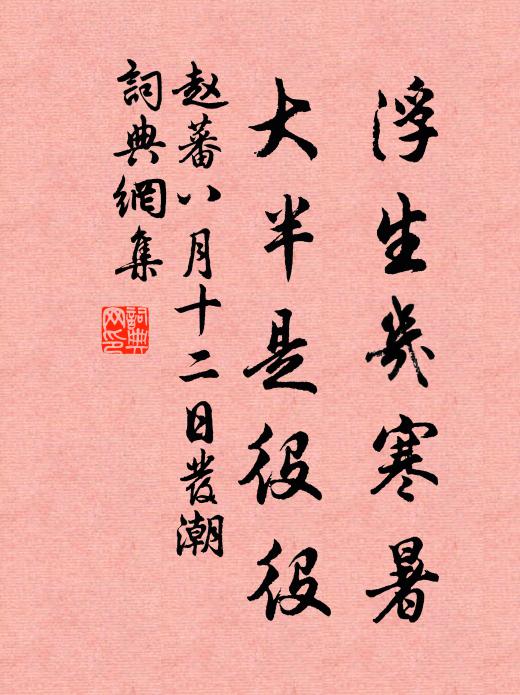 浮生幾寒暑
大半是役役
赵蕃八月十二日發潮
詞典網集
詞典网印